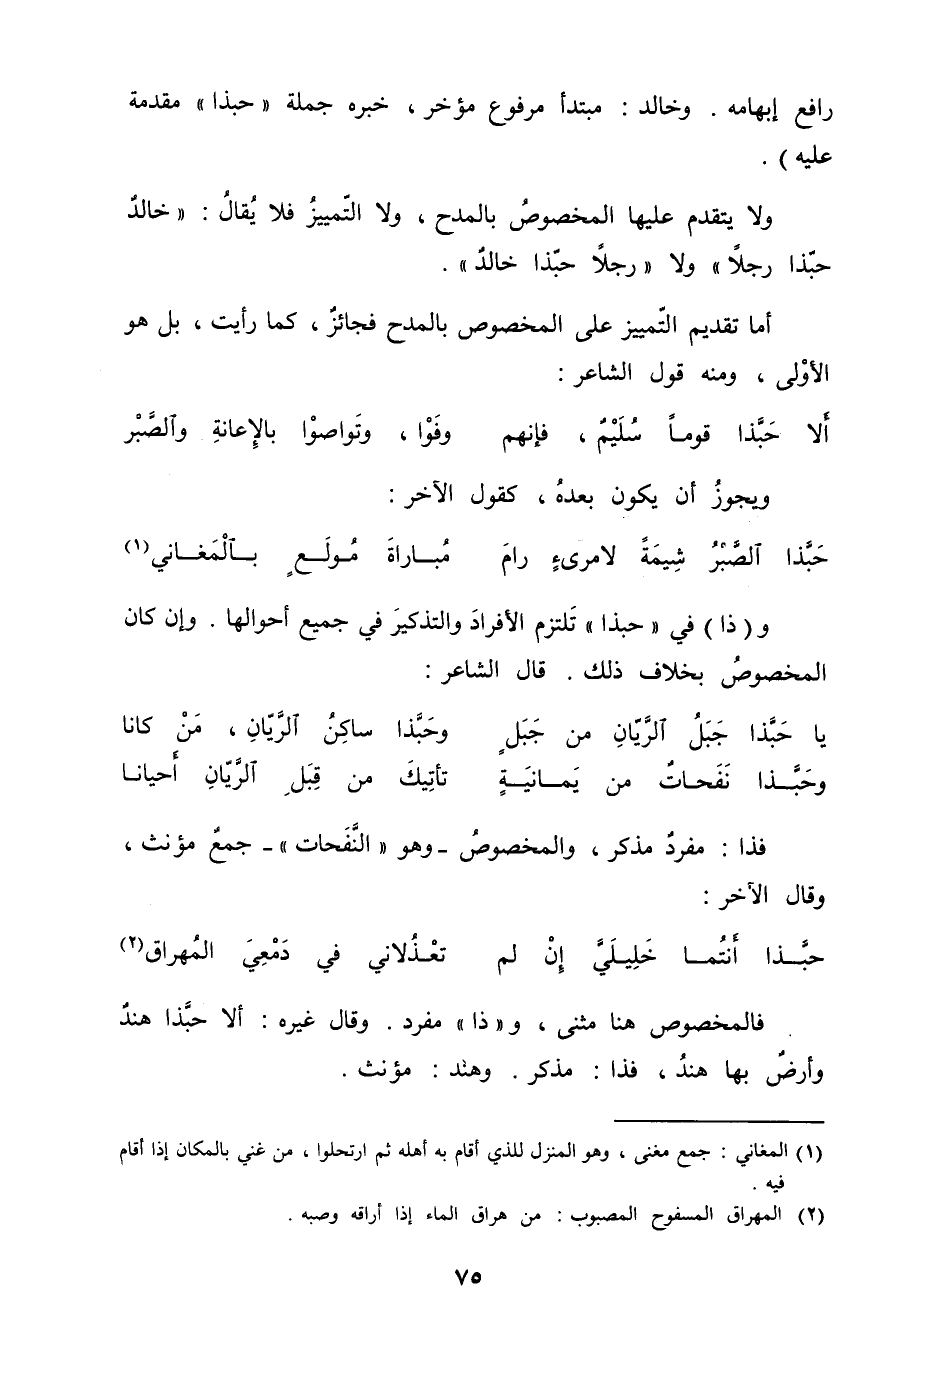 رافع إبهامه . وخالد : مبتدأ مرفوع مؤخر ، خبره جملة « حبذا » مقدمة
عليه ) .
ولا يتقدم عليها المخصوصُ بالمدح ، ولا التّمييزُ فلا يُقالُ : « خالدٌ
حبّذا رجلاً » ولا « رجلاً حبّذا خالدٌ » .
أما تقديم التّمييز على المخصوص بالمدح فجائزٌ ، كما رأيت ، بل هو
الأوْلى ، ومنه قول الشاعر :
أَلا حَبَّذا قوماً سُلَيْمٌ ، فإنهم وفَوْا ، وتَواصوْا بالإعانةِ وٱلصَّبْر
ويجوزُ أن يكون بعدهُ ، كقول الآخر :
حَبَّذا ٱلصَّبْرُ شِيمَةً لامرىءٍ رامَ مُبــاراةَ مُولَــعٍ بــٱلْمَغــاني(١)
و ( ذا ) في « حبذا » تَلتزم الأفرادَ والتذكيرَ في جميع أحوالها . وإن كان
المخصوصُ بخلاف ذلك . قال الشاعر :
يا حَبَّذا جَبَلُ ٱلرَّيّانِ من جَبَلٍ وحَبَّذا ساكِنُ ٱلرَّيّانِ ، مَنْ كانا
وحَبَّــذا نَفَحاتٌ من يَمــانيَــةٍ تأتِيكَ من قِبَلِ ٱلرَّيّانِ أَحيانــا
فذا : مفردٌ مذكر ، والمخصوصُ ـ وهو « النَّفَحات » ـ جمعٌ مؤنث ،
وقال الآخر :
حبَّــذا أَنتُمــا خَلِيلَيَّ إنْ لم تعْـذُلاني في دَمْعِيَ المُهراق(٢)
فالمخصوص هنا مثنى ، و « ذا » مفرد . وقال غيره : ألا حبَّذا هندٌ
وأرضٌ بها هندُ ، فذا : مذكر . وهند : مؤنث .
(١) المغاني : جمع مغنى ، وهو المنزل للذي أقام به أهله ثم ارتحلوا ، من غني بالمكان إذا أقام
فيه .
(٢) المهراق المسفوح المصبوب : من هراق الماء إذا أراقه وصبه .
٧٥